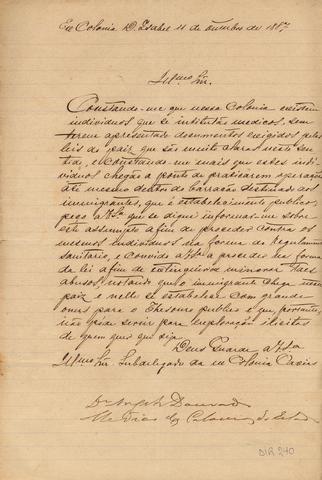 Ex Colonia D. Isabel 11 de outubro de 1887
Illmo Snr.
Constando-me que nessa Colonia existem
individuos que se intitulão medicos, sem
terem apresentado documentos exigidos pelas
leis do paiz, que são muito claras neste sen-
tido, e constando-me mais que estes indi-
viduos chegão a ponto de praticarem operações
até mesmo dentro do barracão destinado aos
immigrantes, que é estabelecimento publico,
peço a VSa. que se digne informar-me sobre
este assumpto a fim de proceder contra os
mesmos individuos na forma do Regulamento
sanitario, e convido a VSa a proceder na forma
da lei a fim de minorar taes
abusos, notando que o immigrante chega nesse
paiz e nelle se estabelece com grande
onus para o Thesouro publico e que, portanto,
não póde servir para exploração illicita de
quem quer que seja.
Deus Guarde a VSa
Illmo Snr. Subdelegado da ex Colonia Caxias
Dr.
Medico das Colonias do Estado
DIR 240